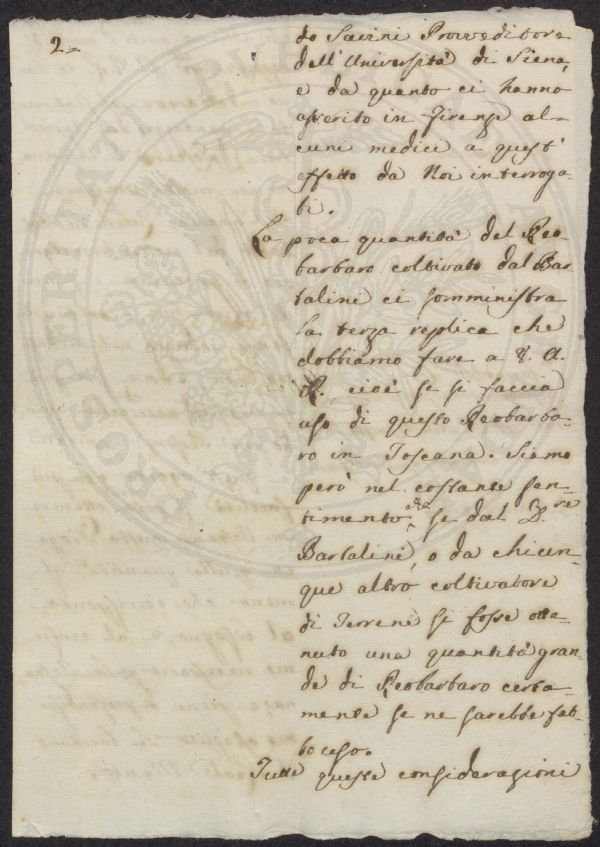 2=
do Savini Provveditore
dell'Università di Siena,
e da quanto ci hanno
asserito in Firenze al-
cuni medici a quest'
effetto da Noi interroga-
ti.
La poca quantità del Reo-
barbaro coltivato dal Bar
talini ci somministra
la terza replica che
dobbiamo fare a V. A.
R. cioè se si faccia
uso di questo Reobarba-
ro in Toscana. Siamo
però nel costante sen-
timento, che se dal D.re
Bartalini, o da chicun-
que altro coltivatore
di Terreni si fosse otte-
nuto una quantità gran-
de di Reobarbaro certa-
mente se ne sarebbe fat-
to uso.
Tutte queste considerazioni
PROSPERITATI PUBLICAE